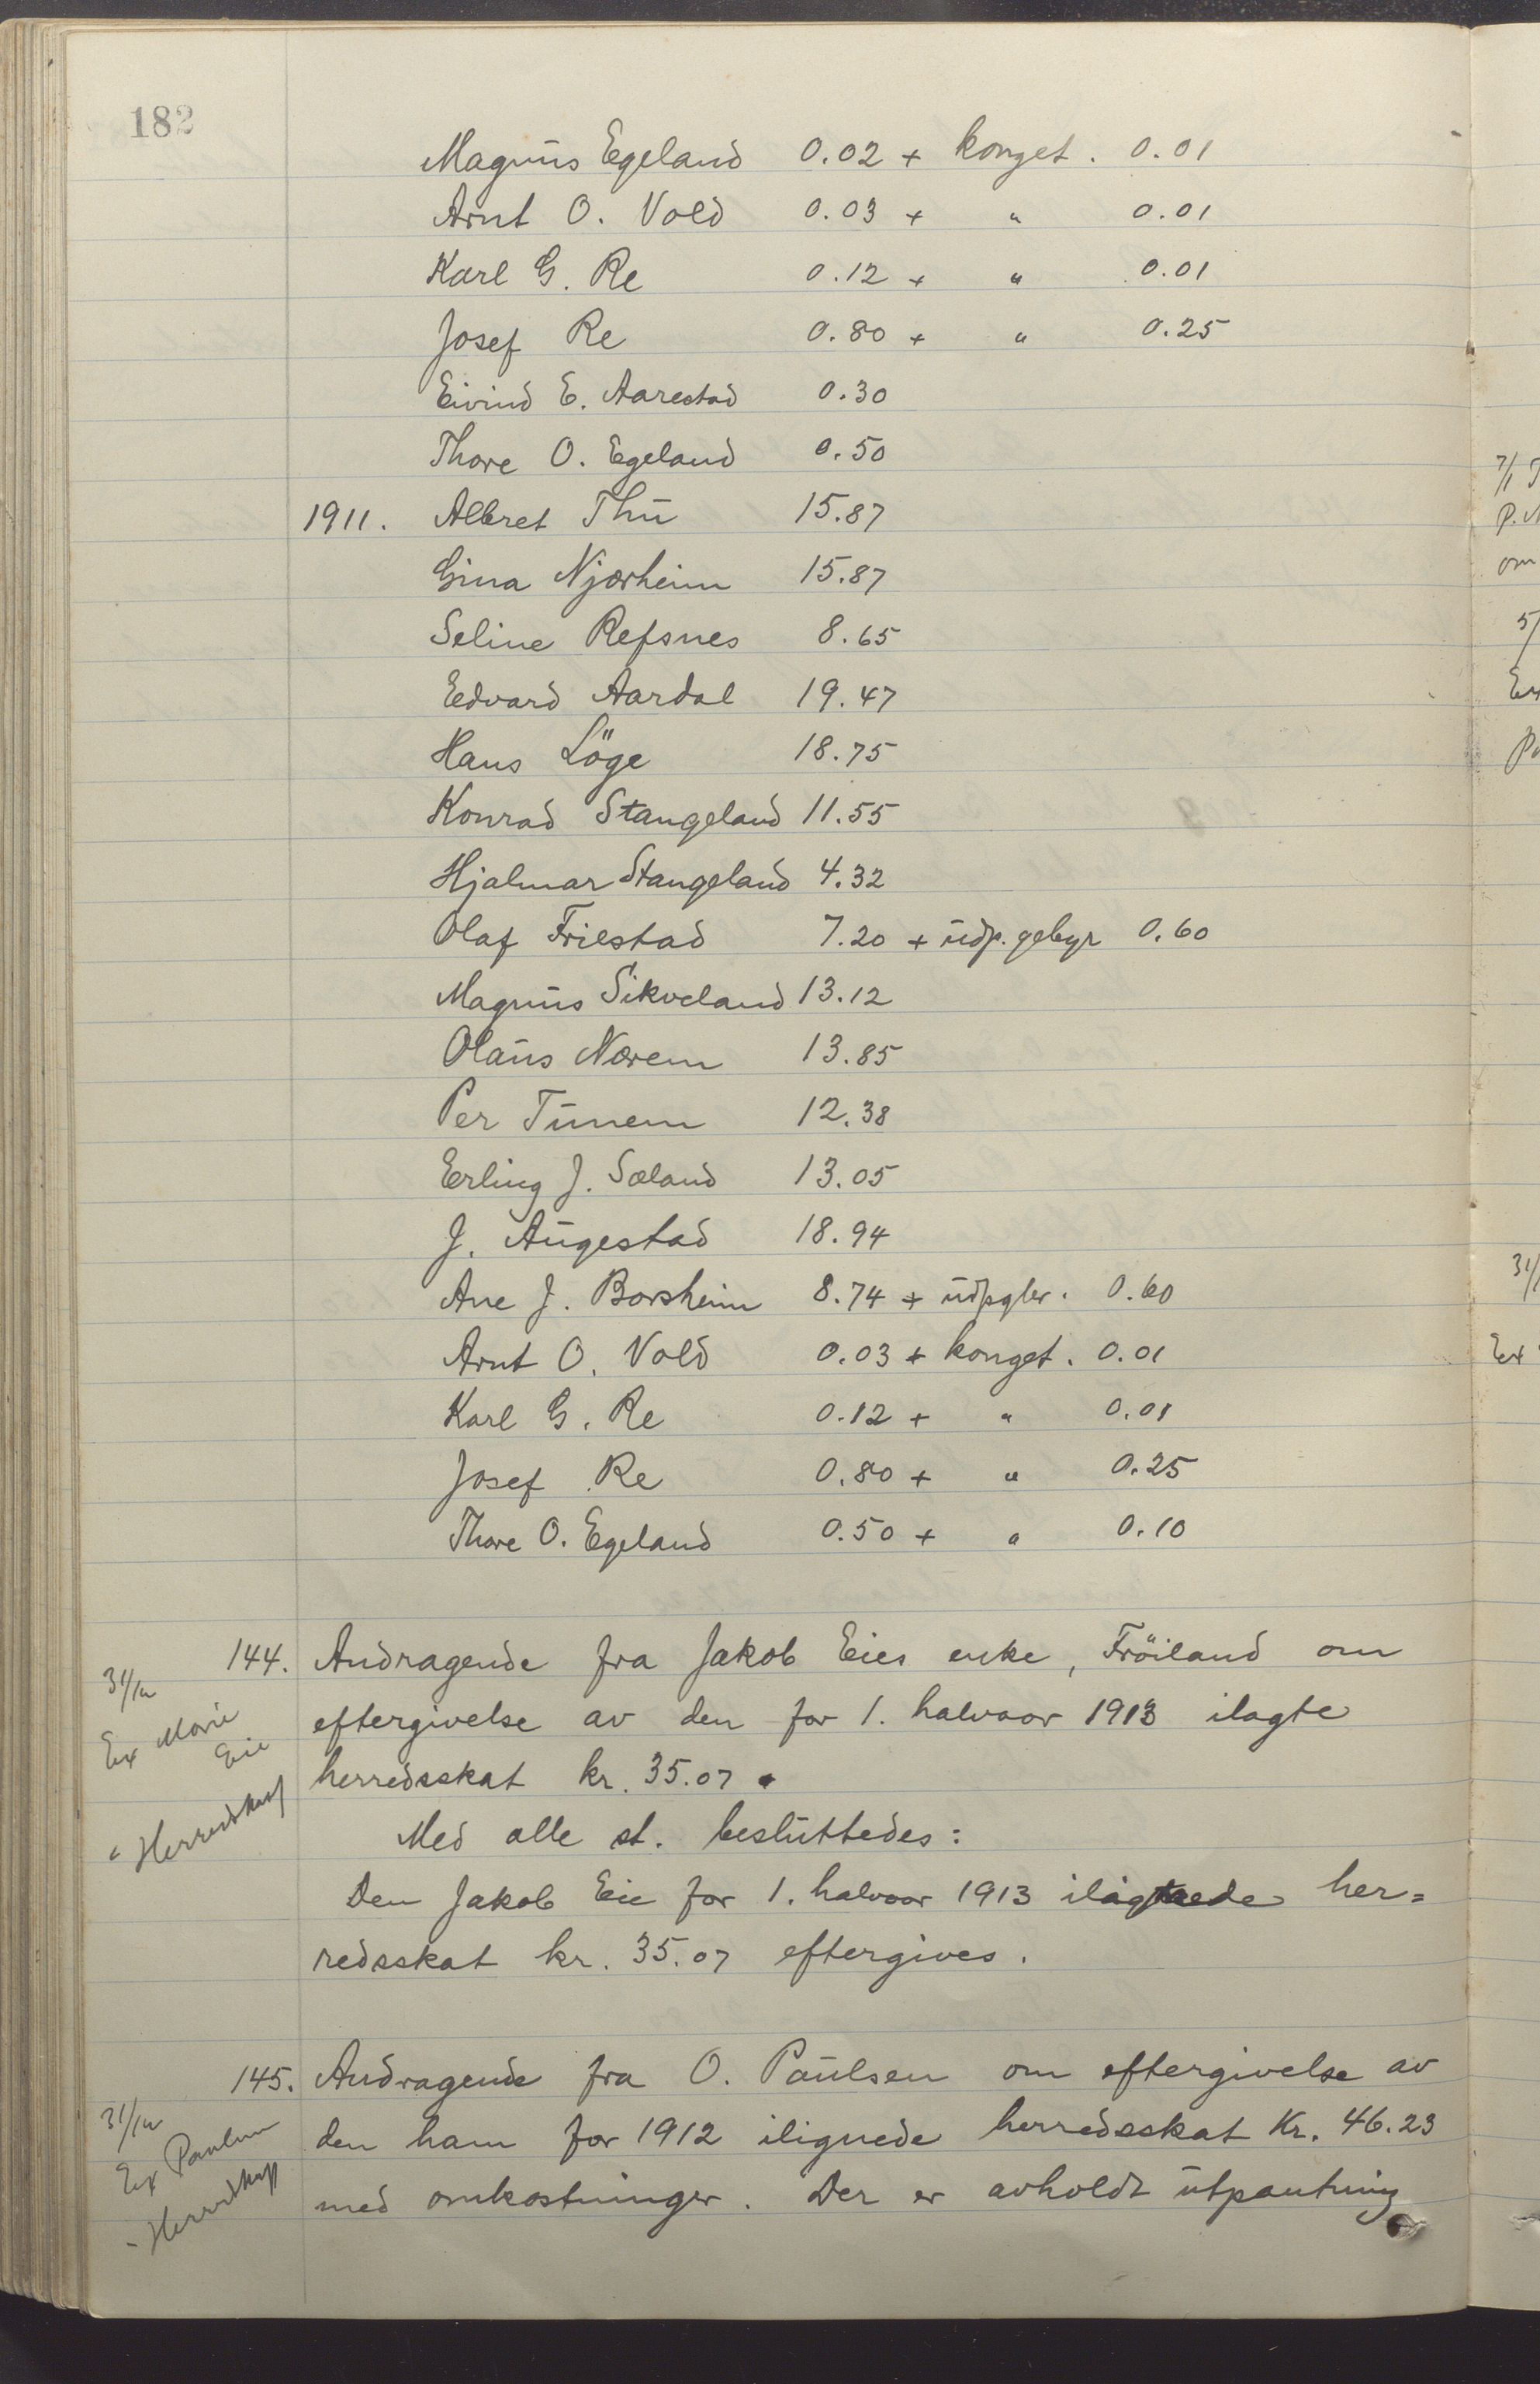 182
Magnus Egeland 0.02 + konget. 0.01
Arnt O. Vold 0.03 + " 0.01
Karl G. Re 0.12 + " 0.01
Josef Re 0.80 + " 0.25
Eivind E. Aarestad 0.30
Thore O. Egeland 0.50
1911. Albret Thu 15.87
Gina Njærheim 15.87
Seline Refsnes 8.65
Edvard Aardal 19.47
Hans Löge 18.75
Konrad Stangeland 11.55
Hjalmar Stangeland 4.32
Olaf Friestad 7.20 + udp. gebyr 0.60
Magnus Sikveland 13.12
Olaus Nærem 13.85
Per Tunem 12.38
Erling J. Sæland 13.05
J. Augestad 18.94
Ane J. Borsheim 8.74 + udpgbr. 0.60
Arnt O. Vold 0.03 + konget. 0.01
Karl G. Re 0.12 + " 0.01
Josef Re 0.80 + " 0.25
Thore O. Egeland 0.50 + " 0.10
144. Andragende fra Jakob Eies enke, Fröiland om
eftergivelse av den for 1. halvaar 1913 ilagte
herredsskat kr. 35.07.
Med alle st. besluttedes:
Den Jakob Eie for 1. halvaar 1913 ilagte her=
redsskat kr. 35.07 eftergives.
31/12
Ex Marie
Eie
" Herredskas
145. Andragende fra O. Paulsen om eftergivelse av
den ham for 1912 ilignede herredsskat Kr. 46.23
med omkostninger. Der er avholdt utpantning
31/12
Ex Paulsen
" Herredskass